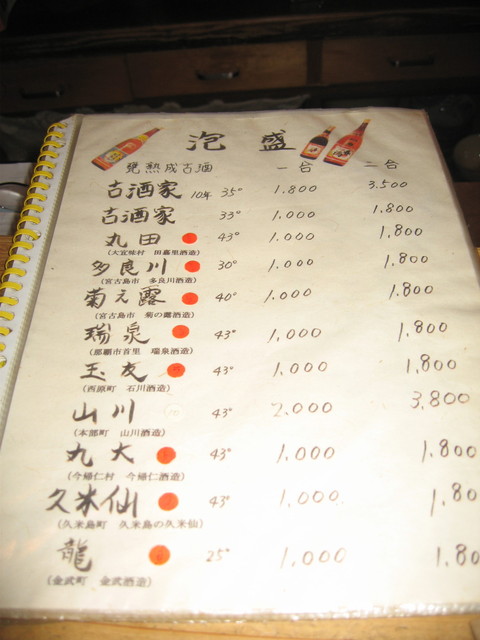 泡盛
甕熟成古酒 一合 二合
古酒家 10年 35° 1.800 3.500
古酒家 33° 1.000 1.800
丸田 43° 1.000 1.800
(大宜味村 田嘉里酒造)
多良川 30° 1.000 1.800
(宮古島市 多良川酒造)
菊之露 40° 1.000 1.800
(宮古島市 菊の露酒造)
瑞泉 43° 1.000 1.800
(那覇市首里 瑞泉酒造)
玉友 43° 1.000 1,800
(西原町 石川酒造)
山川 43° 2.000 3.800
(本部町 山川酒造)
丸大 43° 1.000 1.800
(今帰仁村 今帰仁酒造)
久米仙 43° 1.000 1.80
(久米島町 久米島の久米仙)
龍 25° 1.000 1.80
(金武町 金武酒造)